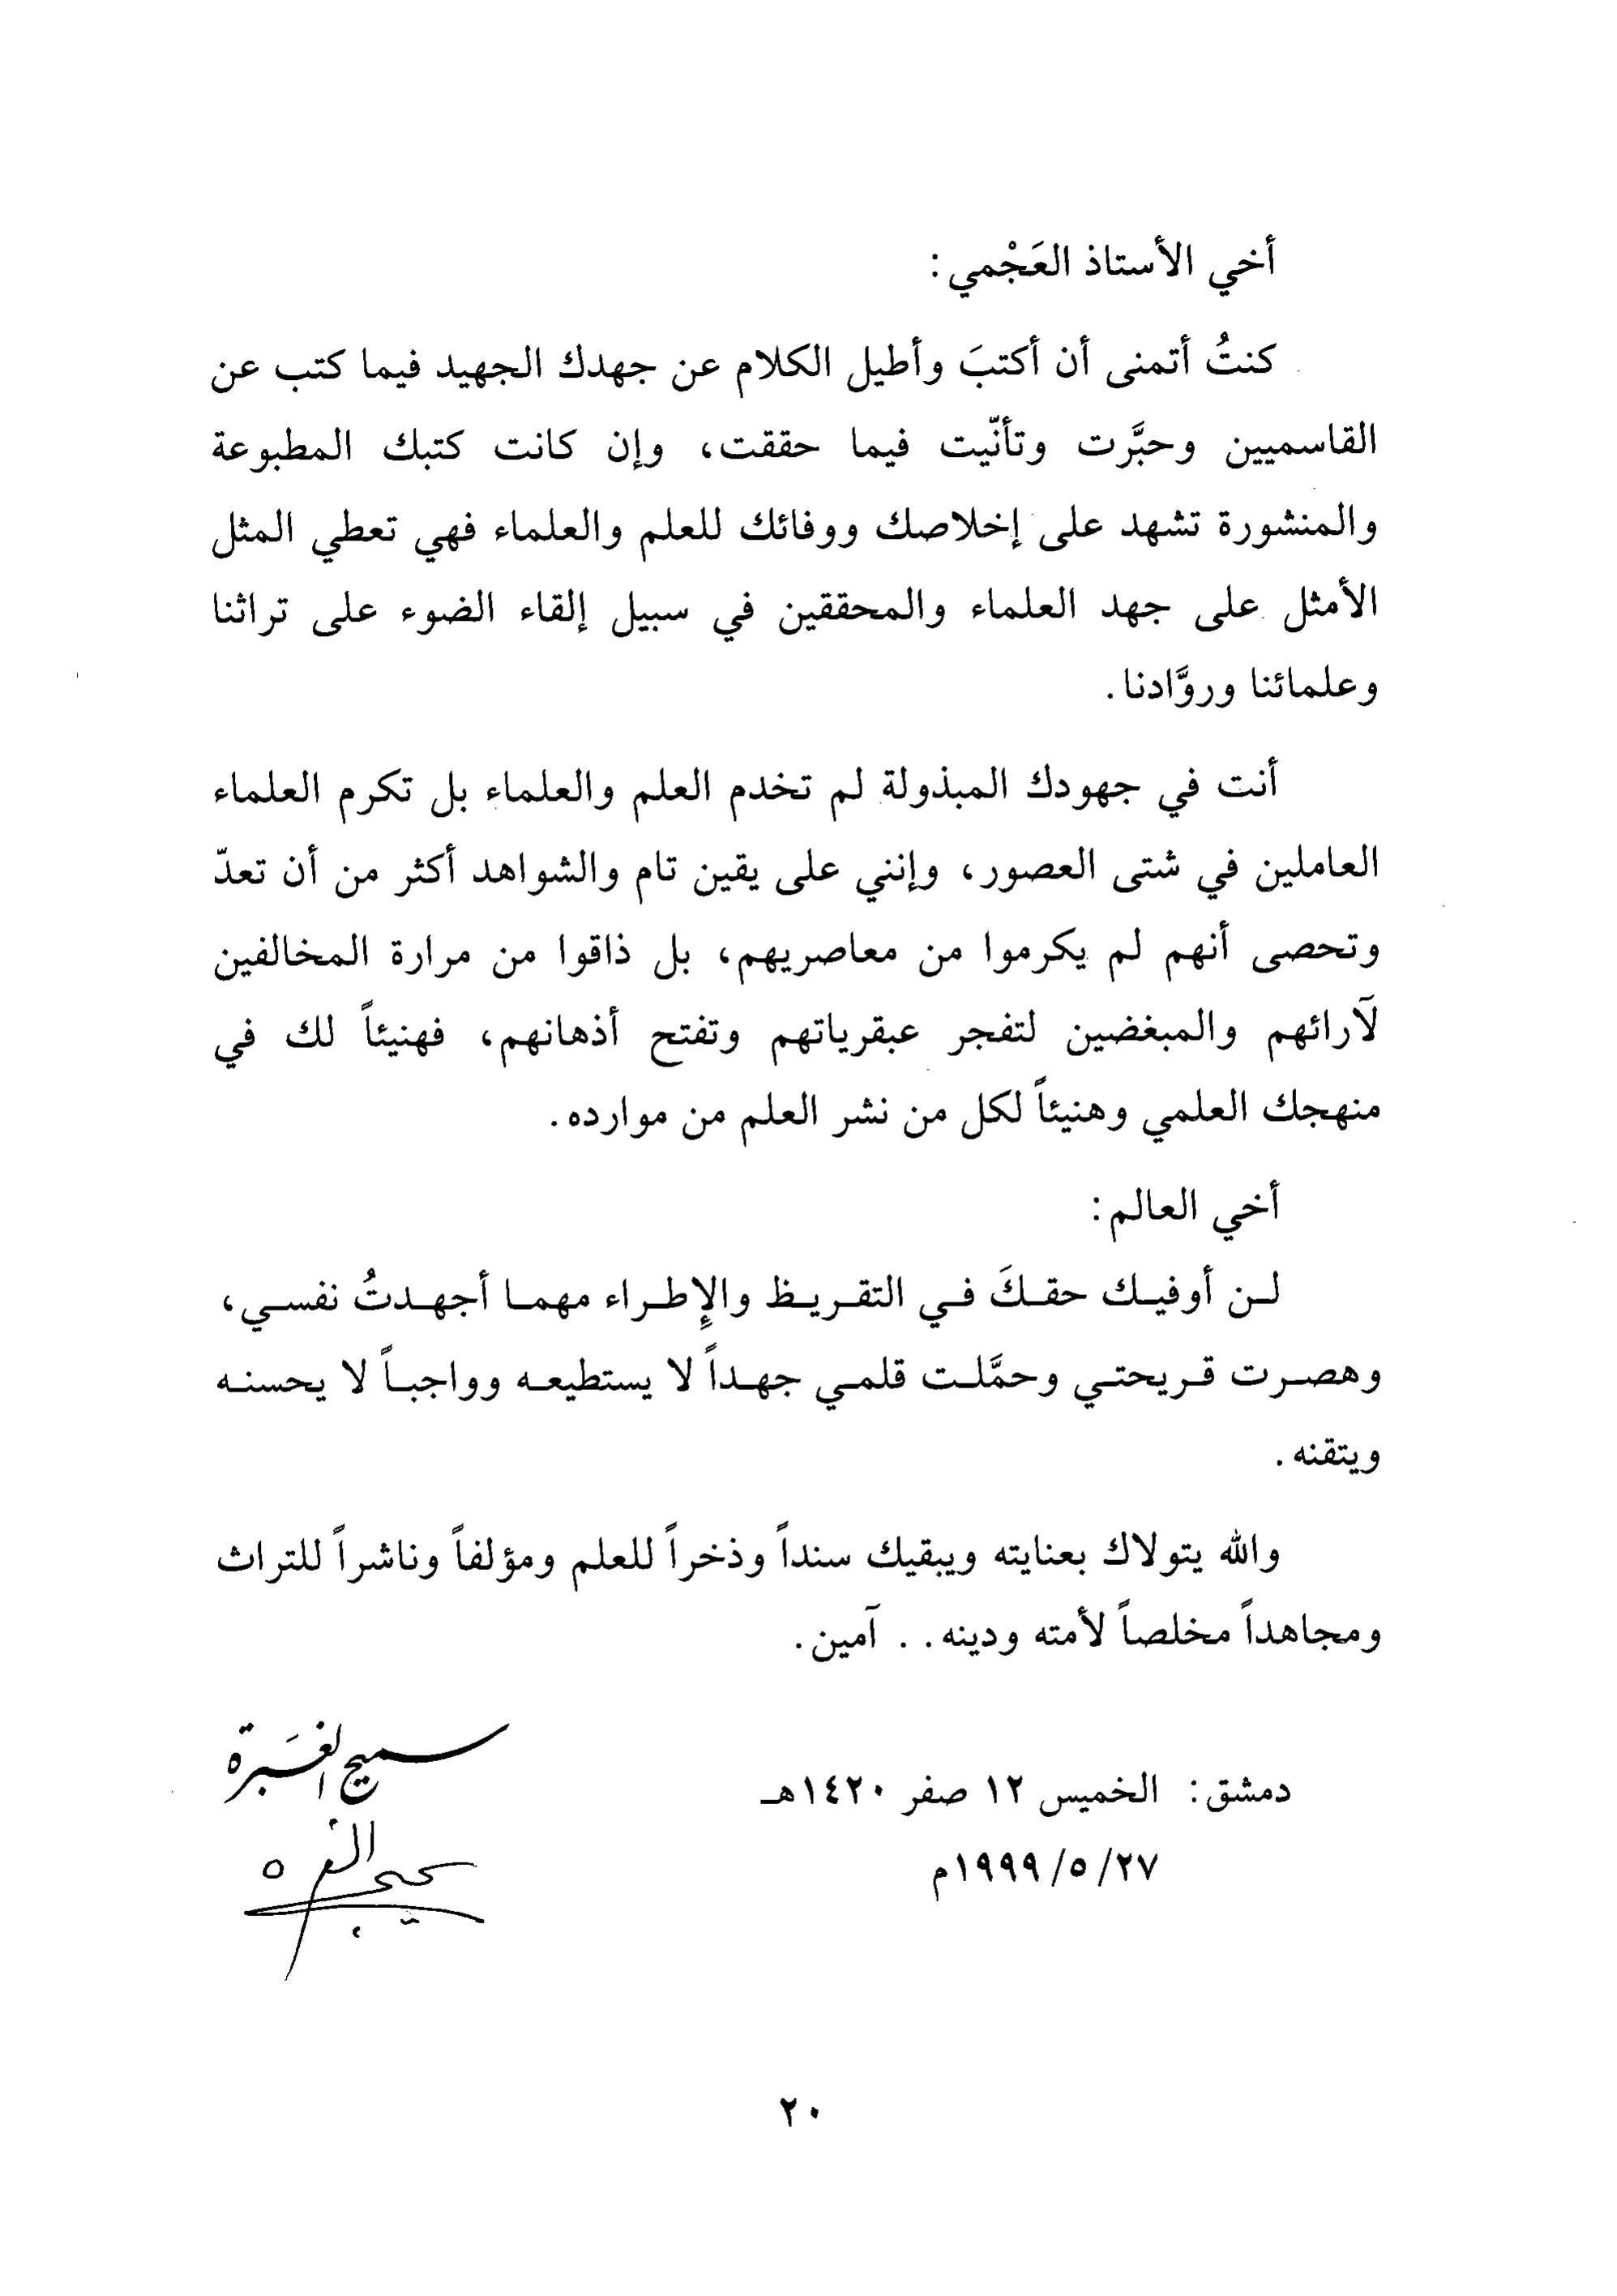 أخي الأستاذ العَجْمي:
كنتُ أتمنى أن أكتبَ وأطيل الكلام عن جهدك الجهيد فيما كتب عن
القاسميين وحبَّرت وتأنّيت فيما حققت، وإن كانت كتبك المطبوعة
والمنشورة تشهد على إخلاصك ووفائك للعلم والعلماء فهي تعطي المثل
الأمثل على جهد العلماء والمحققين في سبيل إلقاء الضوء على تراثنا
وعلمائنا وروَّادنا.
أنت في جهودك المبذولة لم تخدم العلم والعلماء بل تكرم العلماء
العاملين في شتى العصور، وإنني على يقين تام والشواهد أكثر من أن تعدّ
وتحصى أنهم لم يكرموا من معاصريهم، بل ذاقوا من مرارة المخالفين
لآرائهم والمبغضين لتفجر عبقرياتهم وتفتح أذهانهم، فهنيئاً لك في
منهجك العلمي وهنيئاً لكل من نشر العلم من موارده.
أخي العالم:
لـن أوفيـك حقـكَ فـي التقـريـظ والإِطـراء مهمـا أجهـدتُ نفسـي،
وهصـرت قـريحتـي وحمَّلـت قلمـي جهـداً لا يستطيعـه وواجبـاً لا يحسنـه
ويتقنه.
والله يتولاك بعنايته ويبقيك سنداً وذخراً للعلم ومؤلفاً وناشراً للتراث
ومجاهداً مخلصاً لأمته ودينه.. آمين.
سميح الغَبرة
دمشق: الخميس ١٢ صفر ١٤٢٠هـ
٢٧/ ٥/ ١٩٩٩م
٢٠